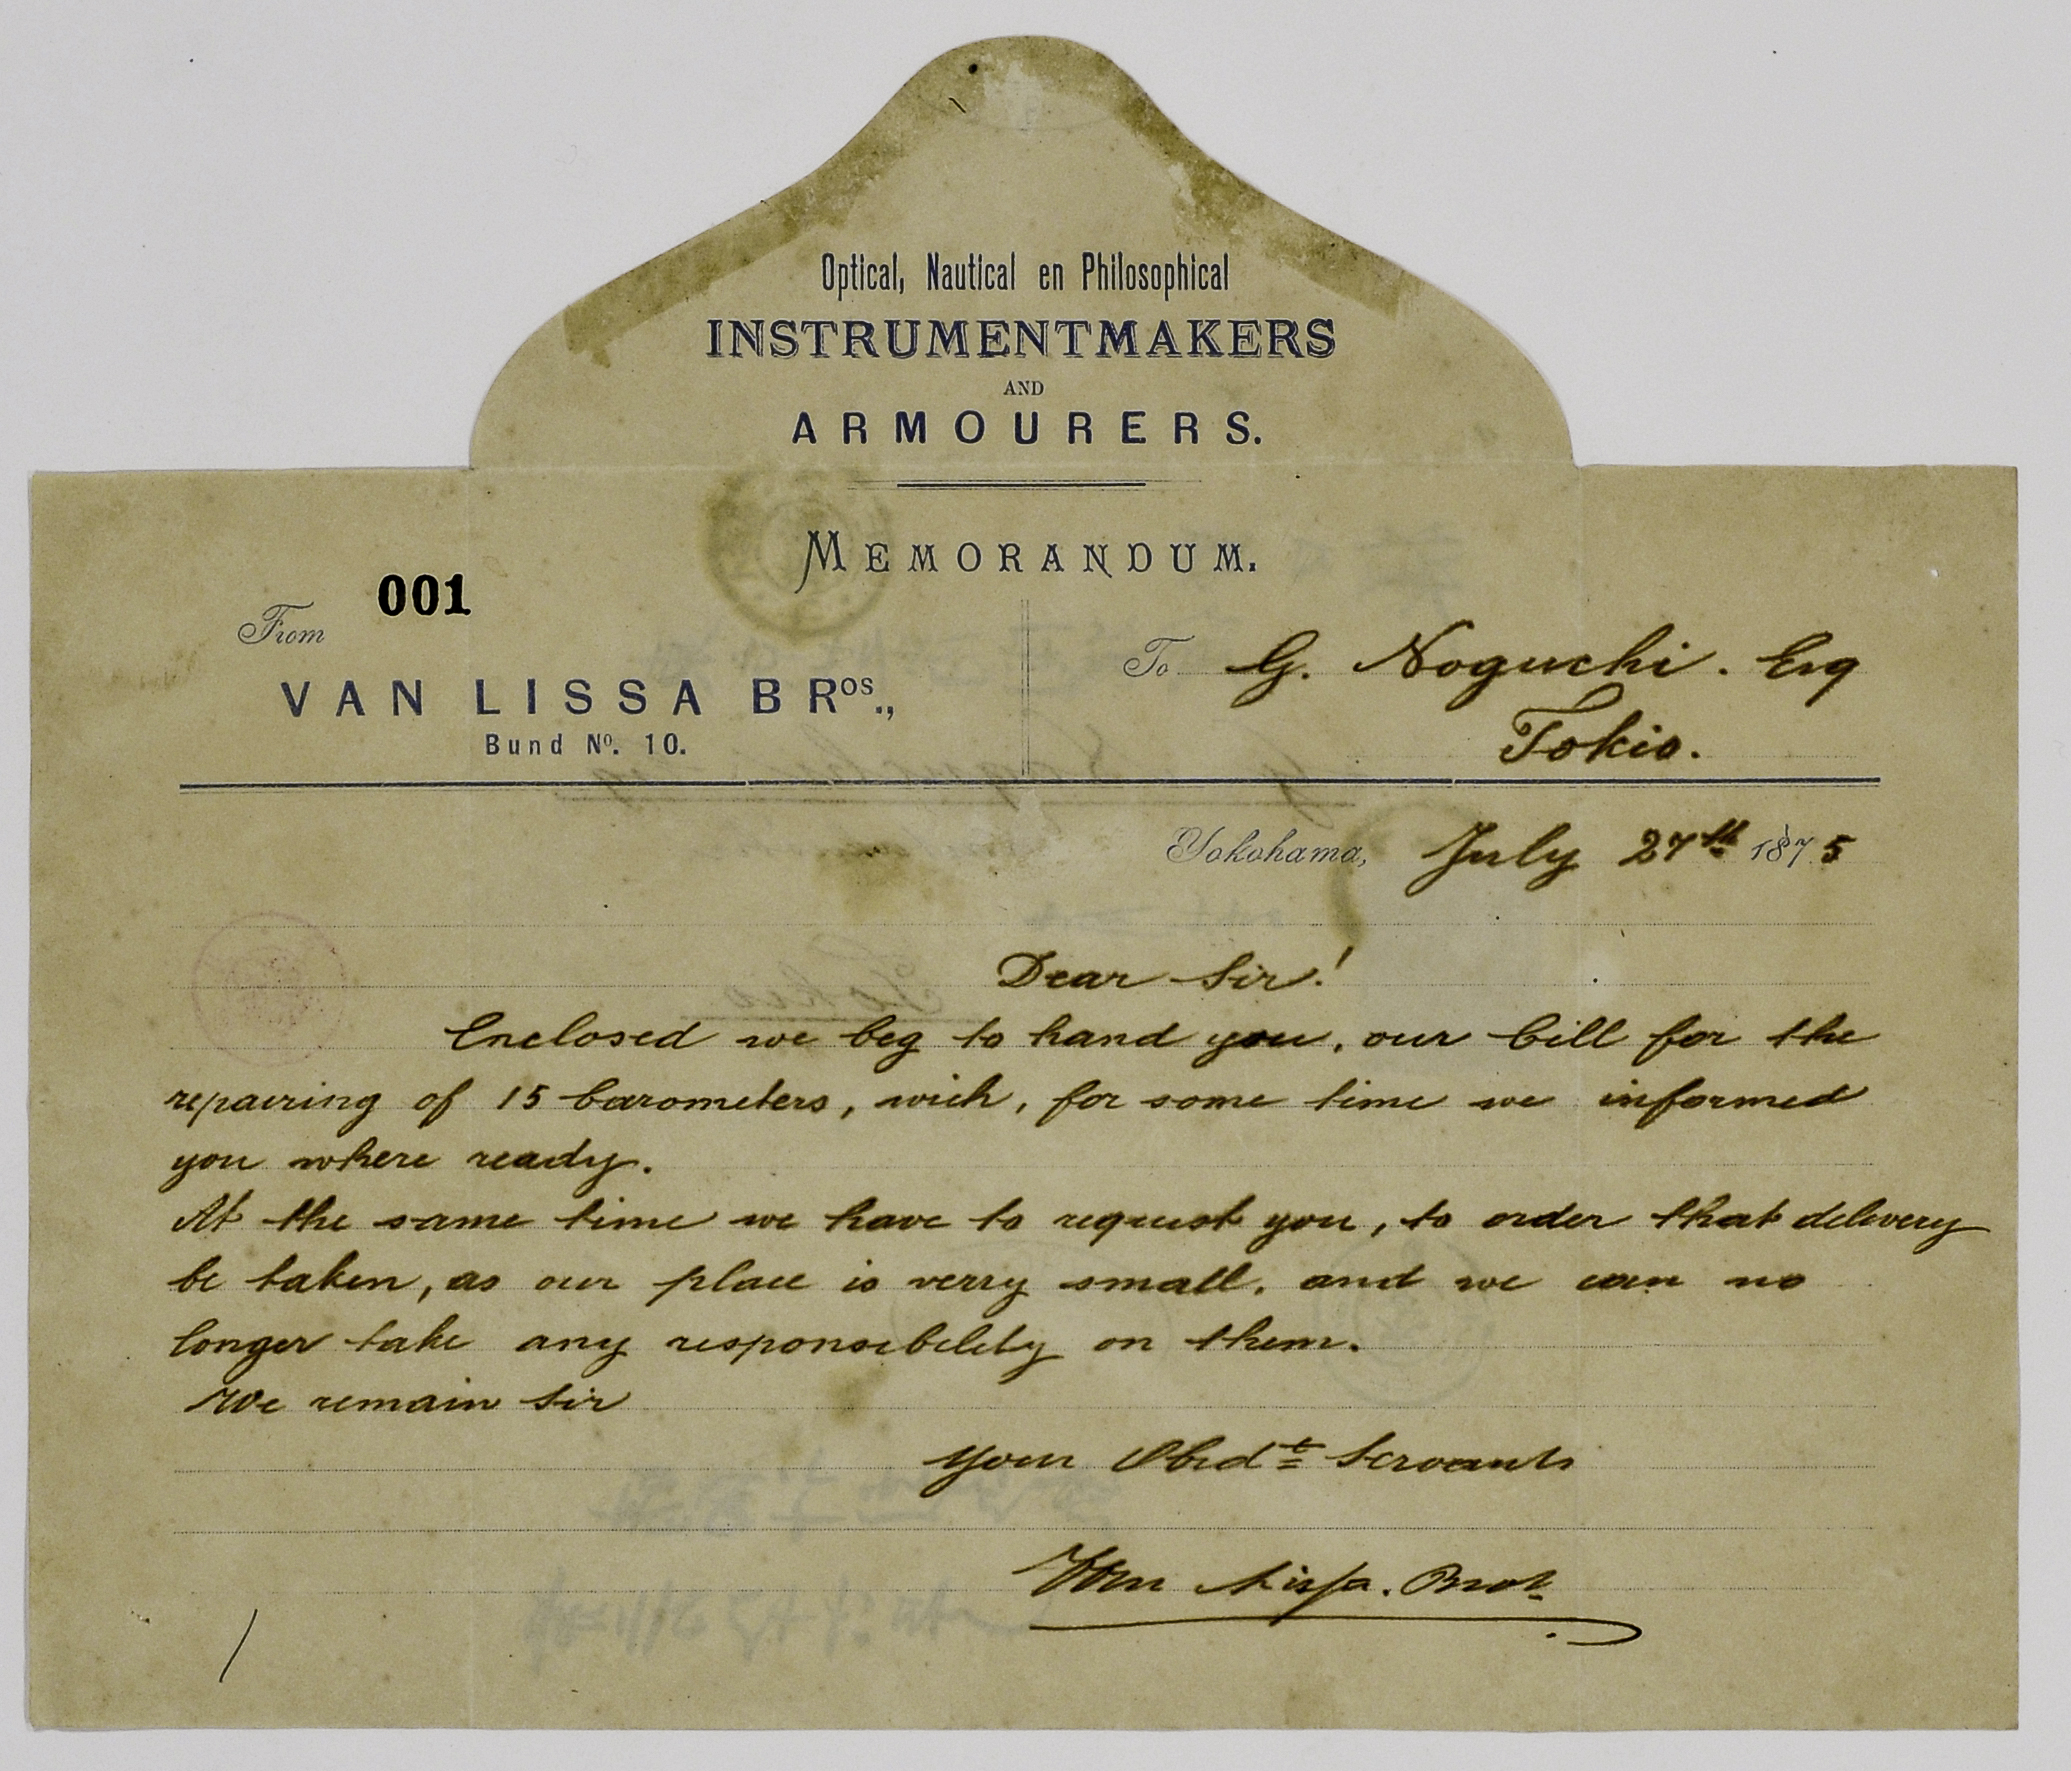 Optical, Nautical en Philosophical
INSTRUMENTMAKERS
AND
ARMOURERS.
MEMORANDUM.
001
From
VAN LISSA BROS.,
Bund No. 10.
To G. Noguchi. Esq
Tokio.
Yokohama, July 27th 1875
Dear Sir!
Enclosed we beg to hand you, our bill for the
repairing of 15 barometers, wich, for some time we informed
you where ready.
At the same time we have to request you, to order that delivery
be taken, as our place is verry small, and we can no
longer take any responsebelety on them.
We remain Sir
Your Obedt Servants
Van Lissa. Bros.